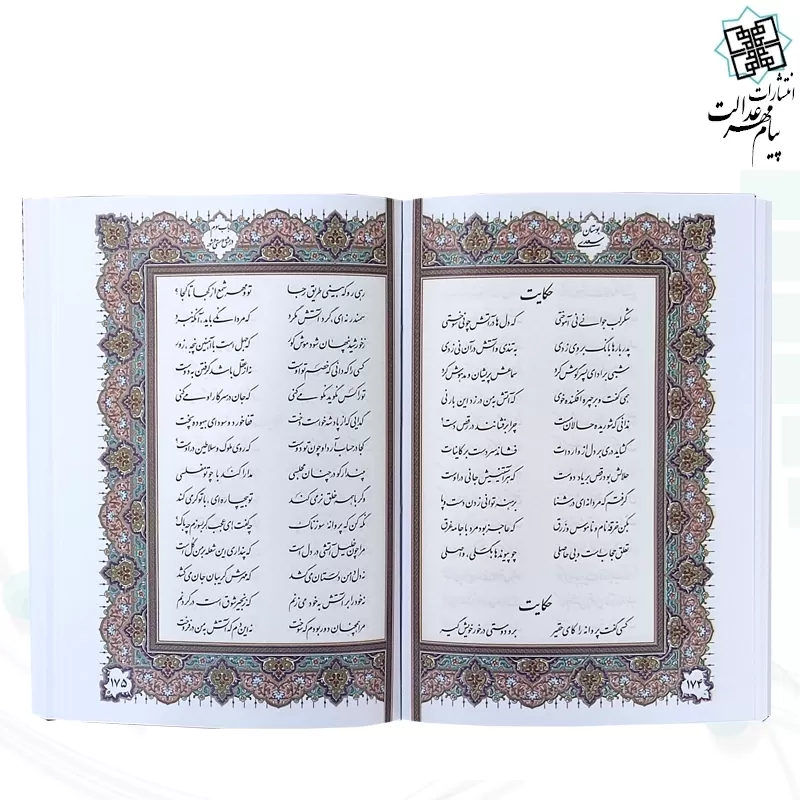 انتشارات
پیام مهر عدالت
بوستان
سعدی
حکایت
شکر لب جوانی نی آموختی که دل ها در آتش چو نی سوختی
پدر بارها بانگ بر وی زدی به تندی و آتش در آن نی زدی
شبی بر ادای پسر گوش کرد سماعش پریشان و مدهوش کرد
همی گفت و بر چهره افکنده خوی که آتش به من در زد این بار نی
ندانی که شوریده حالان مست چرا برفشانند در رقص دست؟
گشاید دری بر دل از واردات فشاند سر دست بر کاینات
حلالش بود رقص بر یاد دوست که هر آستینیش جانی در اوست
گرفتم که مردانه ای در شنا برهنه توانی زدن دست و پا
بکن خرقه نام و ناموس و زرق که عاجز بود مرد با جامه غرق
تعلق حجاب است و بی حاصلی چو پیوندها بگسلی، واصلی
حکایت
کسی گفت پروانه را کای حقیر برو دوستی در خور خویش گیر
۱۷۴
باب سوم
در عشق و مستی و شور
رهی رو که بینی طریق رجا تو و مهر شمع از کجا تا کجا؟
سمندر نه ای، گرد آتش مگرد که مردانگی باید، آنگه نبرد
ز خورشید پنهان شود موش کور که جهل است با آهنین پنجه، زور
کسی را که دانی که خصم تو اوست نه از عقل باشد گرفتن به دوست
تو را کس نگوید نکو می کنی که جان در سر کار او می کنی
گدایی که از پادشه خواست دخت قفا خورد و سودای بیهوده پخت
کجا در حساب آرد او چون تو دوست که روی ملوک و سلاطین در اوست؟
مپندار کو در چنان مجلسی مدارا کند با چو تو مفلسی
وگر با همه خلق نرمی کند تو بیچاره ای، با تو گرمی کند
نگه کن که پروانه سوزناک چه گفت، ای عجب گر بسوزم چه باک؟
مرا چون خلیل آتشی در دل است که پنداری این شعله بر من گل است
نه دل دامن دلستان می کشد که مهرش گریبان جان می کشد
نه خود را بر آتش به خود می زنم که زنجیر شوق است در گردنم
مرا همچنان دور بودم که سوخت نه این دم که آتش به من در فروخت
۱۷۵